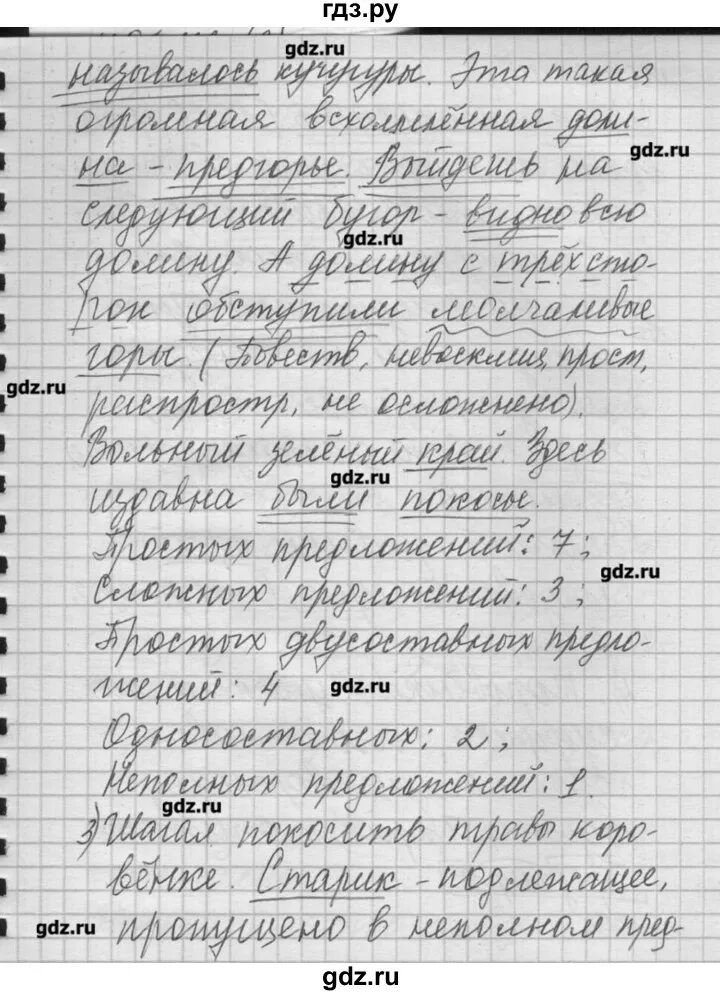 гдз.ру
называлось кучугуры. Эта такая
огромная всхолмлённая доли-
на - предгорье. Выйдешь на
следующий бугор - видно всю
долину. А долину с трёх сто-
рон обступили молчаливые
горы. (Повеств, невосклиц, прост,
распростр, не осложнено).
Вольный зелёный край. Здесь
издавна были покосы.
Простых предложений: 7;
Сложных предложений: 3;
Простых двусоставных предло-
жений: 4
Односоставных: 2;
Неполных предложений: 1.
3) Шагал покосить травы коро-
вёнке. Старик - подлежащее,
пропущено в неполном пред-
gdz.ru
gdz.ru
gdz.ru
gdz.ru
gdz.ru
gdz.ru
gdz.ru
gdz.ru
gdz.ru
gdz.ru
gdz.ru